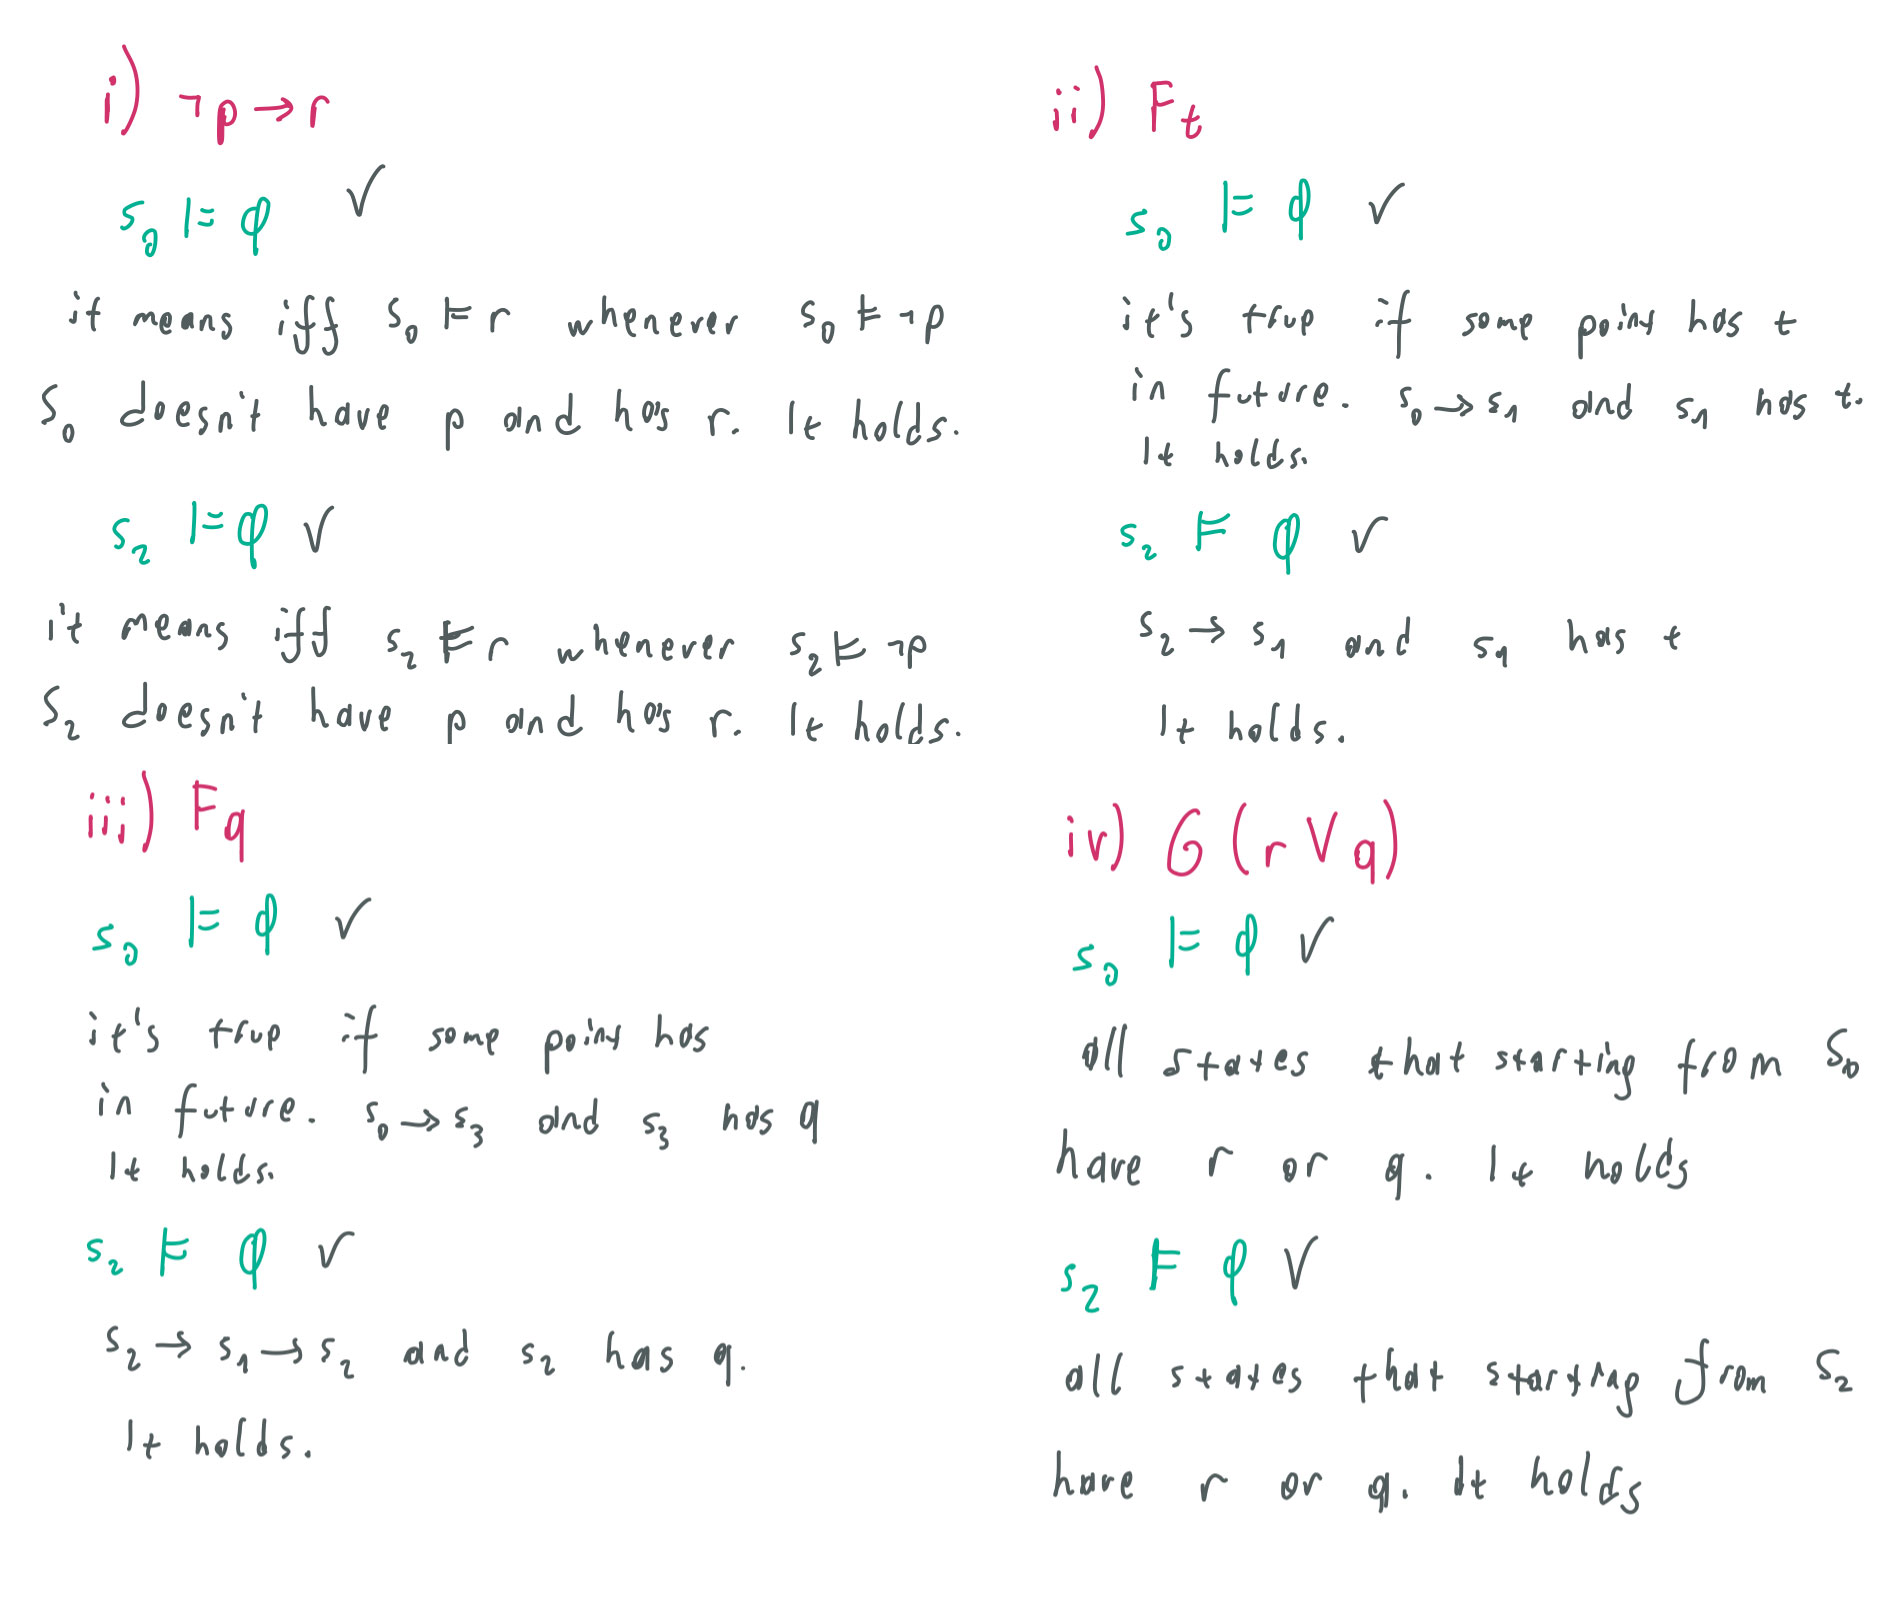 i) ¬p → r
s₀ ⊨ φ ✓
it means iff s₀ ⊨ r whenever s₀ ⊨ ¬p
S₀ doesn't have p and has r. It holds.
s₂ ⊨ φ ✓
it means iff s₂ ⊨ r whenever s₂ ⊨ ¬p
S₂ doesn't have p and has r. It holds.
ii) Ft
s₀ ⊨ φ ✓
it's true if some point has t
in future. s₀ → s₁ and s₁ has t.
It holds.
s₂ ⊨ φ ✓
s₂ → s₁ and s₁ has t
It holds.
iii) Fq
s₀ ⊨ φ ✓
it's true if some point has
in future. s₀ → s₃ and s₃ has q
It holds.
s₂ ⊨ φ ✓
s₂ → s₁ → s₂ and s₂ has q.
It holds.
iv) G (r ∨ q)
s₀ ⊨ φ ✓
all states that starting from S₀
have r or q. It holds
s₂ ⊨ φ ✓
all states that starting from S₂
have r or q. It holds